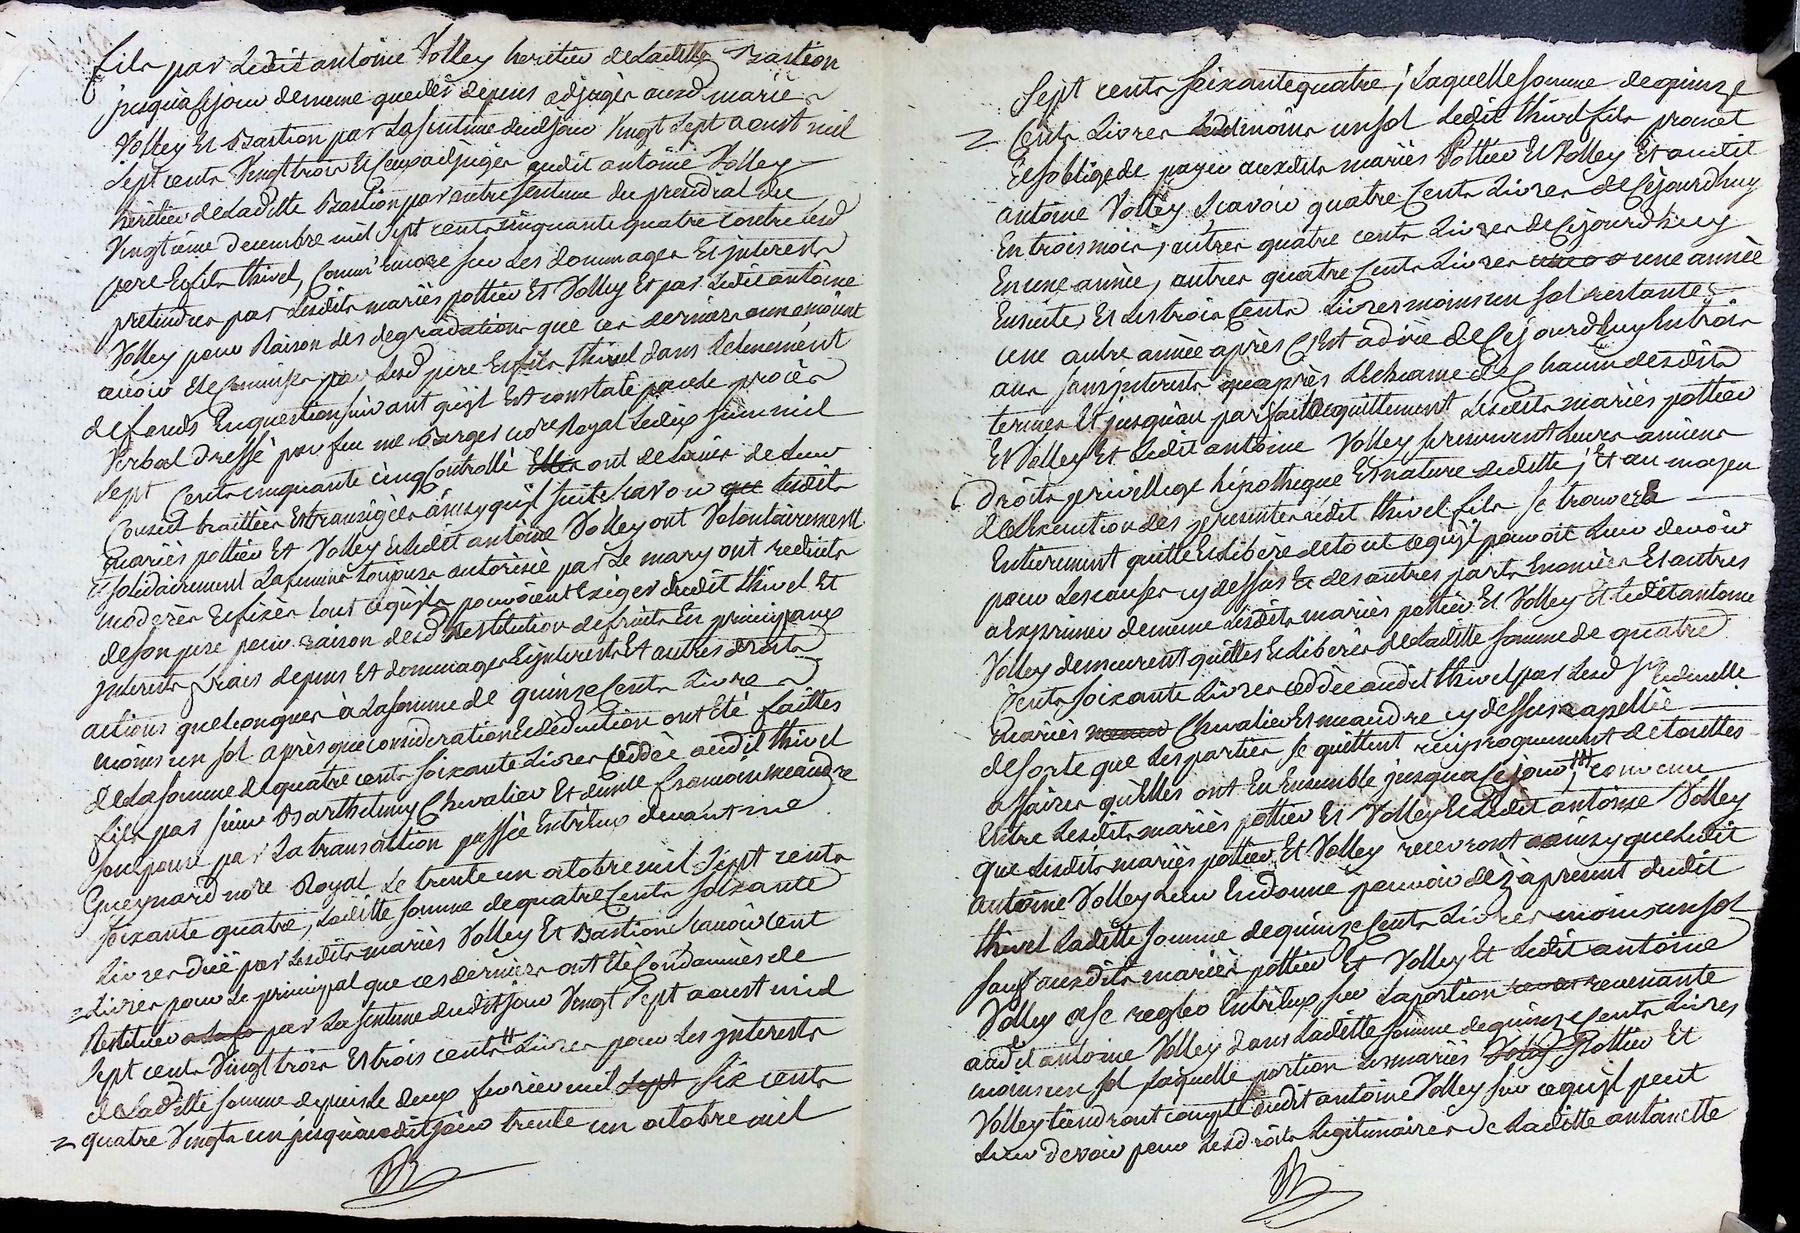 fils par Ledit antoine Volley heritier de Laditte Bastion
jusqua cejour de meme que des depens adjugés ausd mariés
Volley Et Bastion par La sentence dud jour Vingt Sept aoust mil
Sept cents Vingt trois Et ceux adjugés audit antoine Volley
heritier de Laditte Bastion par autre sentence du presidial du
Vingtieme decembre mil Sept cents cinquante quatre contre lesd
pere Et fils thivel, Comm' encore sur Les dommages Et jnterests
pretendus par Lesdits mariés pottier Et Volley Et par Ledit antoine
Volley pour Raison des degradations que ces derniers
avoir Eté Commises par Lesd pere Et fils thivel dans Le tenement
de fonds En question suivant qu'jl Est constaté par le procès
Verbal dressé par feu me Berger no.re Royal Le dix juin mil
Sept Cents cinquante cinq Controllé ont de Lavis de Leur
Conseil traittés Et transigés ainsy qu'jl suit Scavoir que Lesdits
mariés pottier Et Volley Et Ledit antoine Volley ont Volontairement
Et solidairement La femme toujours autorisée par Le mary ont reduits
moderés Et fixés tout ce qu'jls pouvoient Exiger dudit thivel Et
de son pere pour raison desd Restitution de fruits En principaux
jnterests frais depens Et dommages Et jnterests Et autres droits
actions quelconques à La somme de quinze Cents Livres
moins un sol après que consideration Et deduction ont Eté faittes
de La somme de quatre cents soixante Livres cédée audit thivel
fils par sieur Barthelemy Chevalier Et demlle françoise meandre
son Epouse par La transaction passée Entr'eux devant me
Gueynard no.re Royal Le trente un octobre mil Sept cents
soixante quatre, Laditte somme de quatre Cents soixante
Livres düe par Lesdits mariés Volley Et Bastion Scavoir cent
Livres pour Le principal que ces derniers ont Eté Condamnés de
Restituer par La sentence dudit jour Vingt Sept aoust mil
Sept cents Vingt trois Et trois cents Livres pour Les jnterests
de Laditte somme depuis Le deux fevrier mil Sept Six cents
quatre Vingts un jusqu'audit jour trente un octobre mil
Sept cents soixante quatre; Laquelle somme de quinze
Cents Livres moins un sol Ledit thivel fils promet
Et s'oblige de payer auxdits mariés Pottier Et Volley Et audit
antoine Volley, Scavoir quatre Cents Livres de Cejourd'huy
En trois mois, autres quatre cents Livres de Cejourd'huy
En une année, autres quatre Cents Livres une année
Ensuite, Et Les trois Cents Livres moins un sol restantes
une autre année après C'Est a dire de Cejourd'huy En trois
ans sans jnterests qu'après L'Echeance de Chacun desdits
termes Et jusqu'au parfait acquittement Lesdits mariés pottier
Et Volley Et Ledit antoine Volley se reservent Leurs anciens
Droits privillege hipotheque Et nature de dette; Et au moyen
de L'Execution des presentes Ledit thivel fils se trouvera
Entierement quitte Et Libéré de tout ce qu'jl pouvoit Leur devoir
pour Les causes cy dessus Et des autres parts Enoncées Et autres
a Exprimer de meme Lesdits mariés pottier Et Volley Et Ledit antoine
Volley demeurent quittes Et Liberés de Laditte somme de quatre
Cents soixante Livres cédée audit thivel par Lesd Sr Et demlle
mariés Chevalier Et meandre cy dessus rapellée
de sorte que Les parties se quittent reciproquement de touttes
affaires qu'Elles ont Eu Ensemble jusqua Cejour, convenu
Entre Lesdits mariés pottier Et Volley Et Ledit antoine Volley
que Lesdits mariés pottier Et Volley recevront ainsy que Ledit
antoine Volley Leur En donne pouvoir dèz àpresent dudit
thivel Laditte somme de quinze Cents Livres moins un sol
sauf auxdits mariés pottier Et Volley Et Ledit antoine
Volley a se regler Entr'Eux sur La portion revenante
audit antoine Volley dans Laditte somme de quinze Cents Livres
moins un sol Laquelle portion Les mariés Volley Pottier Et
Volley tiendront compte audit antoine Volley sur ce qu'jl peut
Leur devoir pour Les droits Legitimaires de Laditte antoinette